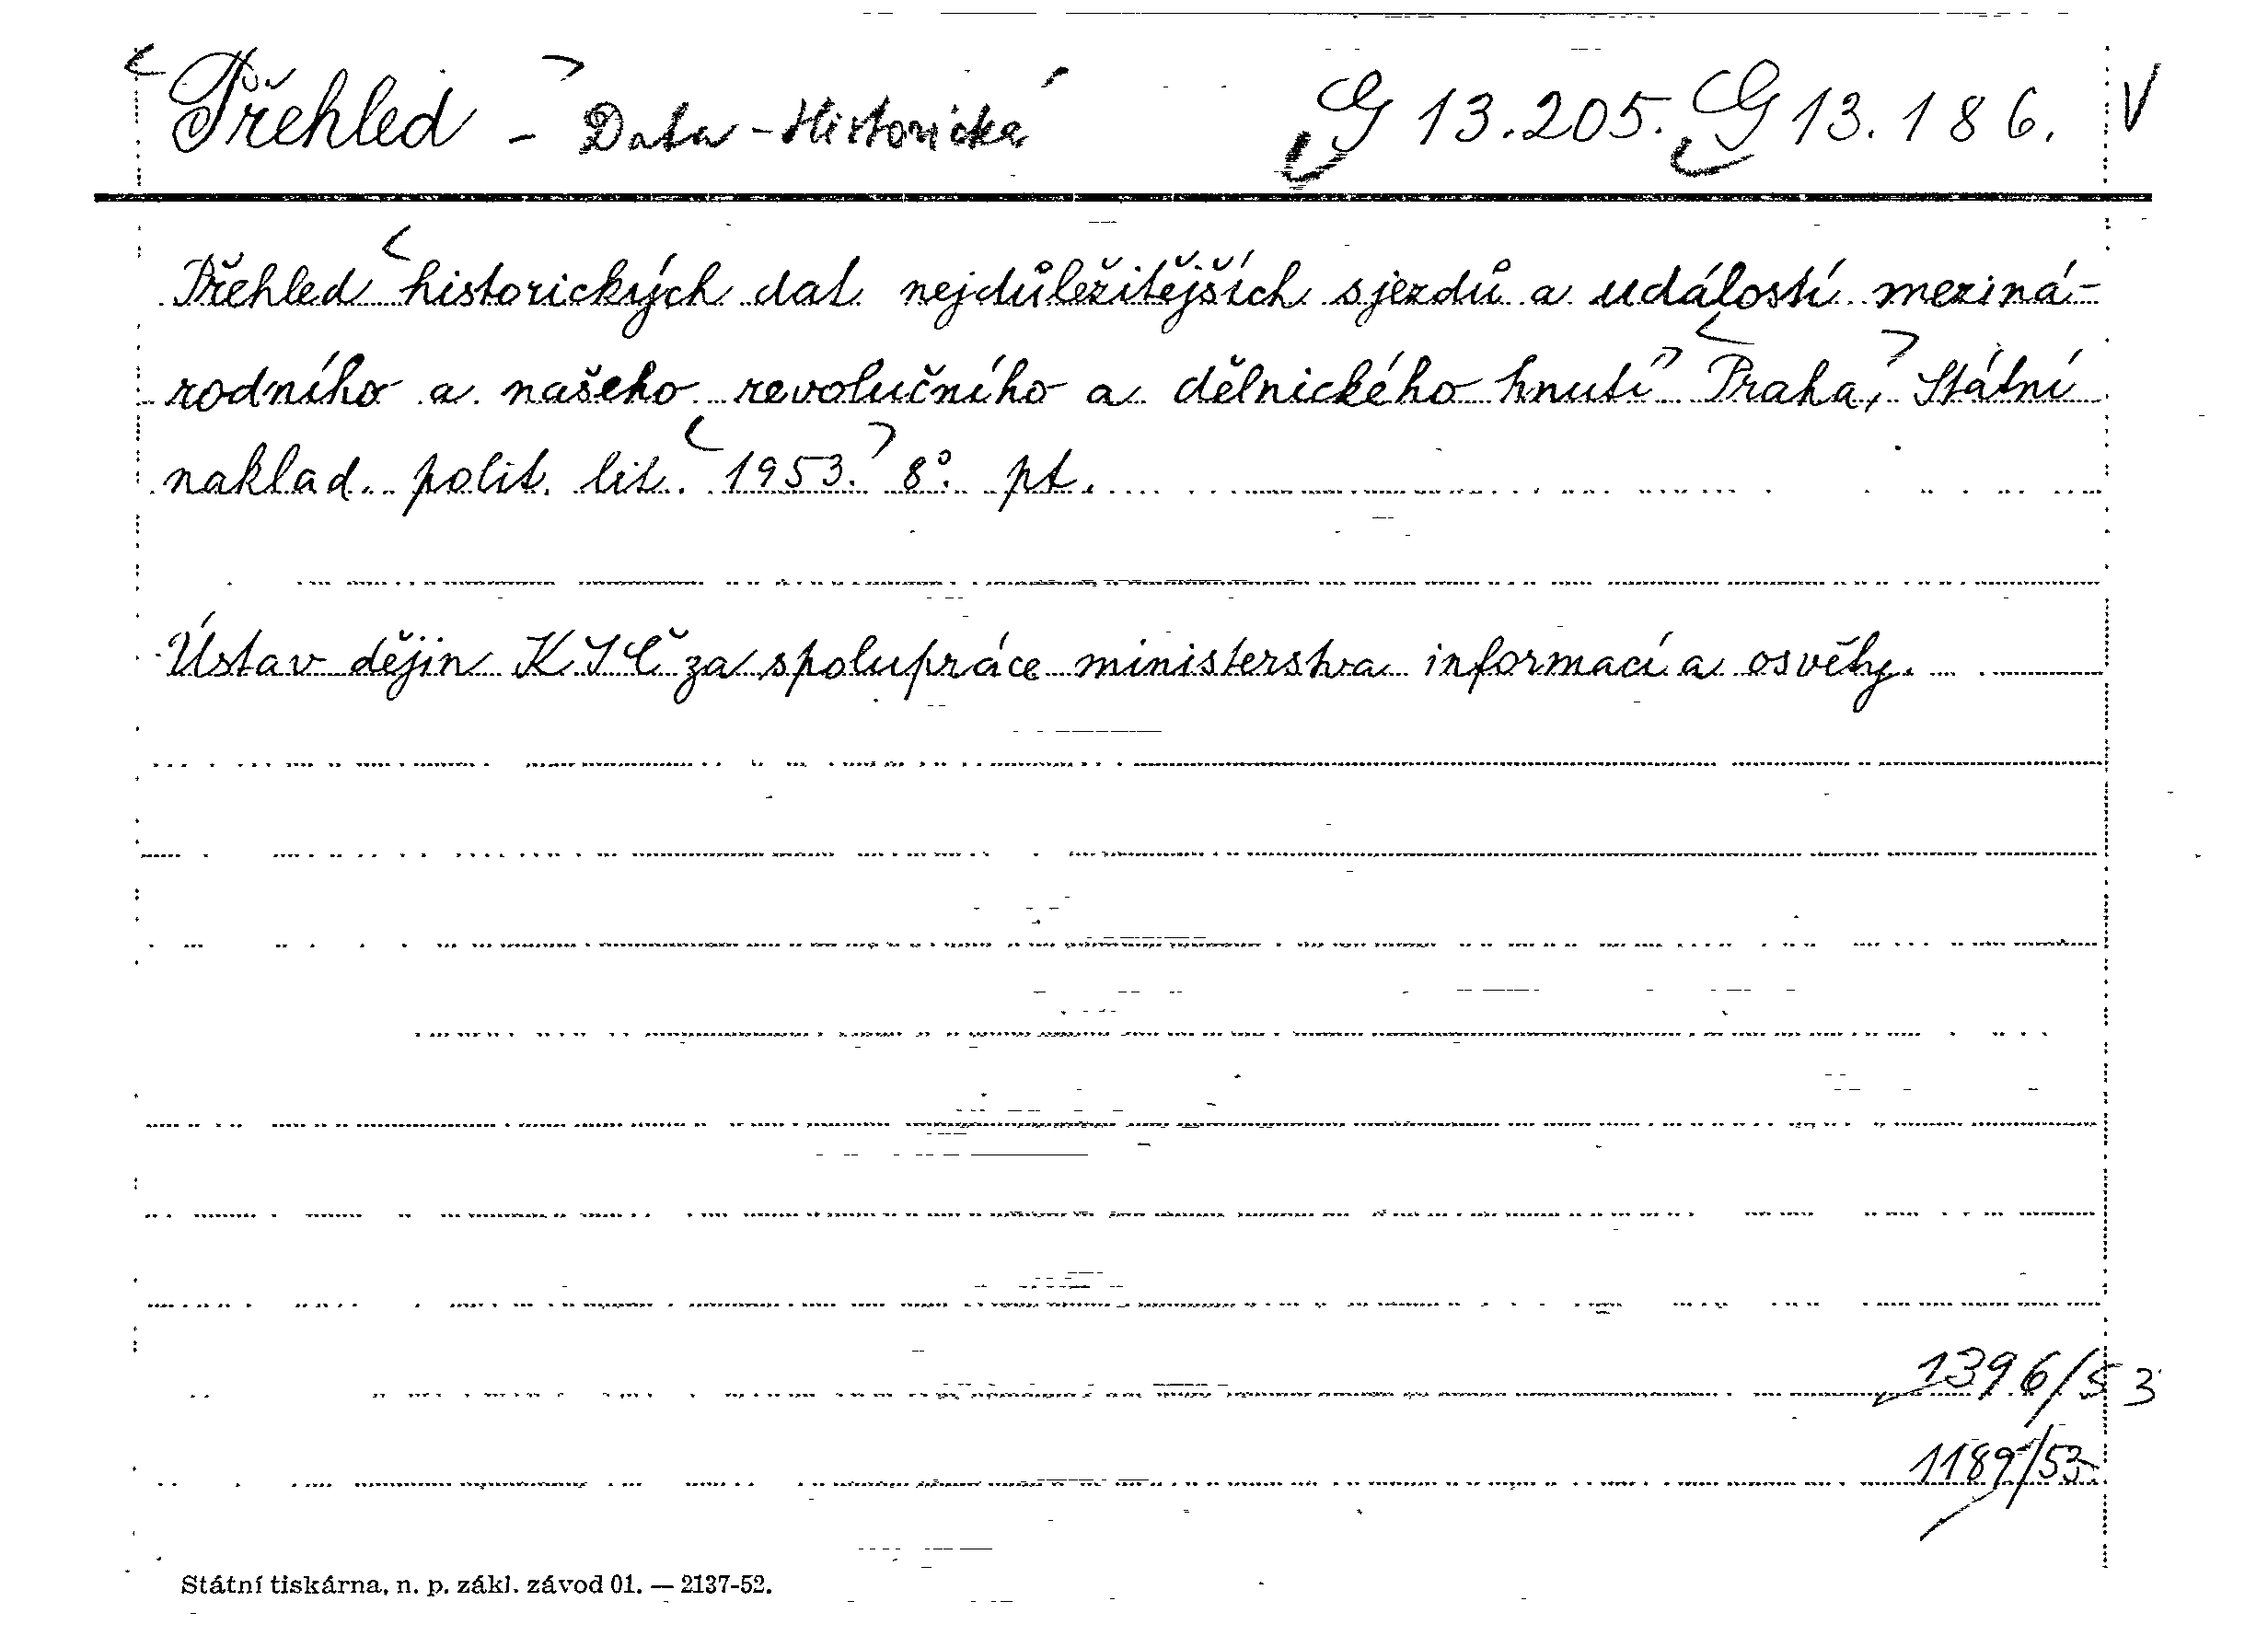 Přehled - Data - Historická G 13.205. G 13.186. V
Přehled historických dat nejdůležitějších sjezdů a událostí meziná-
rodního a našeho revolučního a dělnického hnutí Praha, Státní
naklad. polit. lit. 1953. 8°. pt.
Ústav dějin KSČ za spolupráce ministerstva informací a osvěty.
1396/53
1189/53
Státní tiskárna, n. p. zákl. závod 01. — 2137-52.